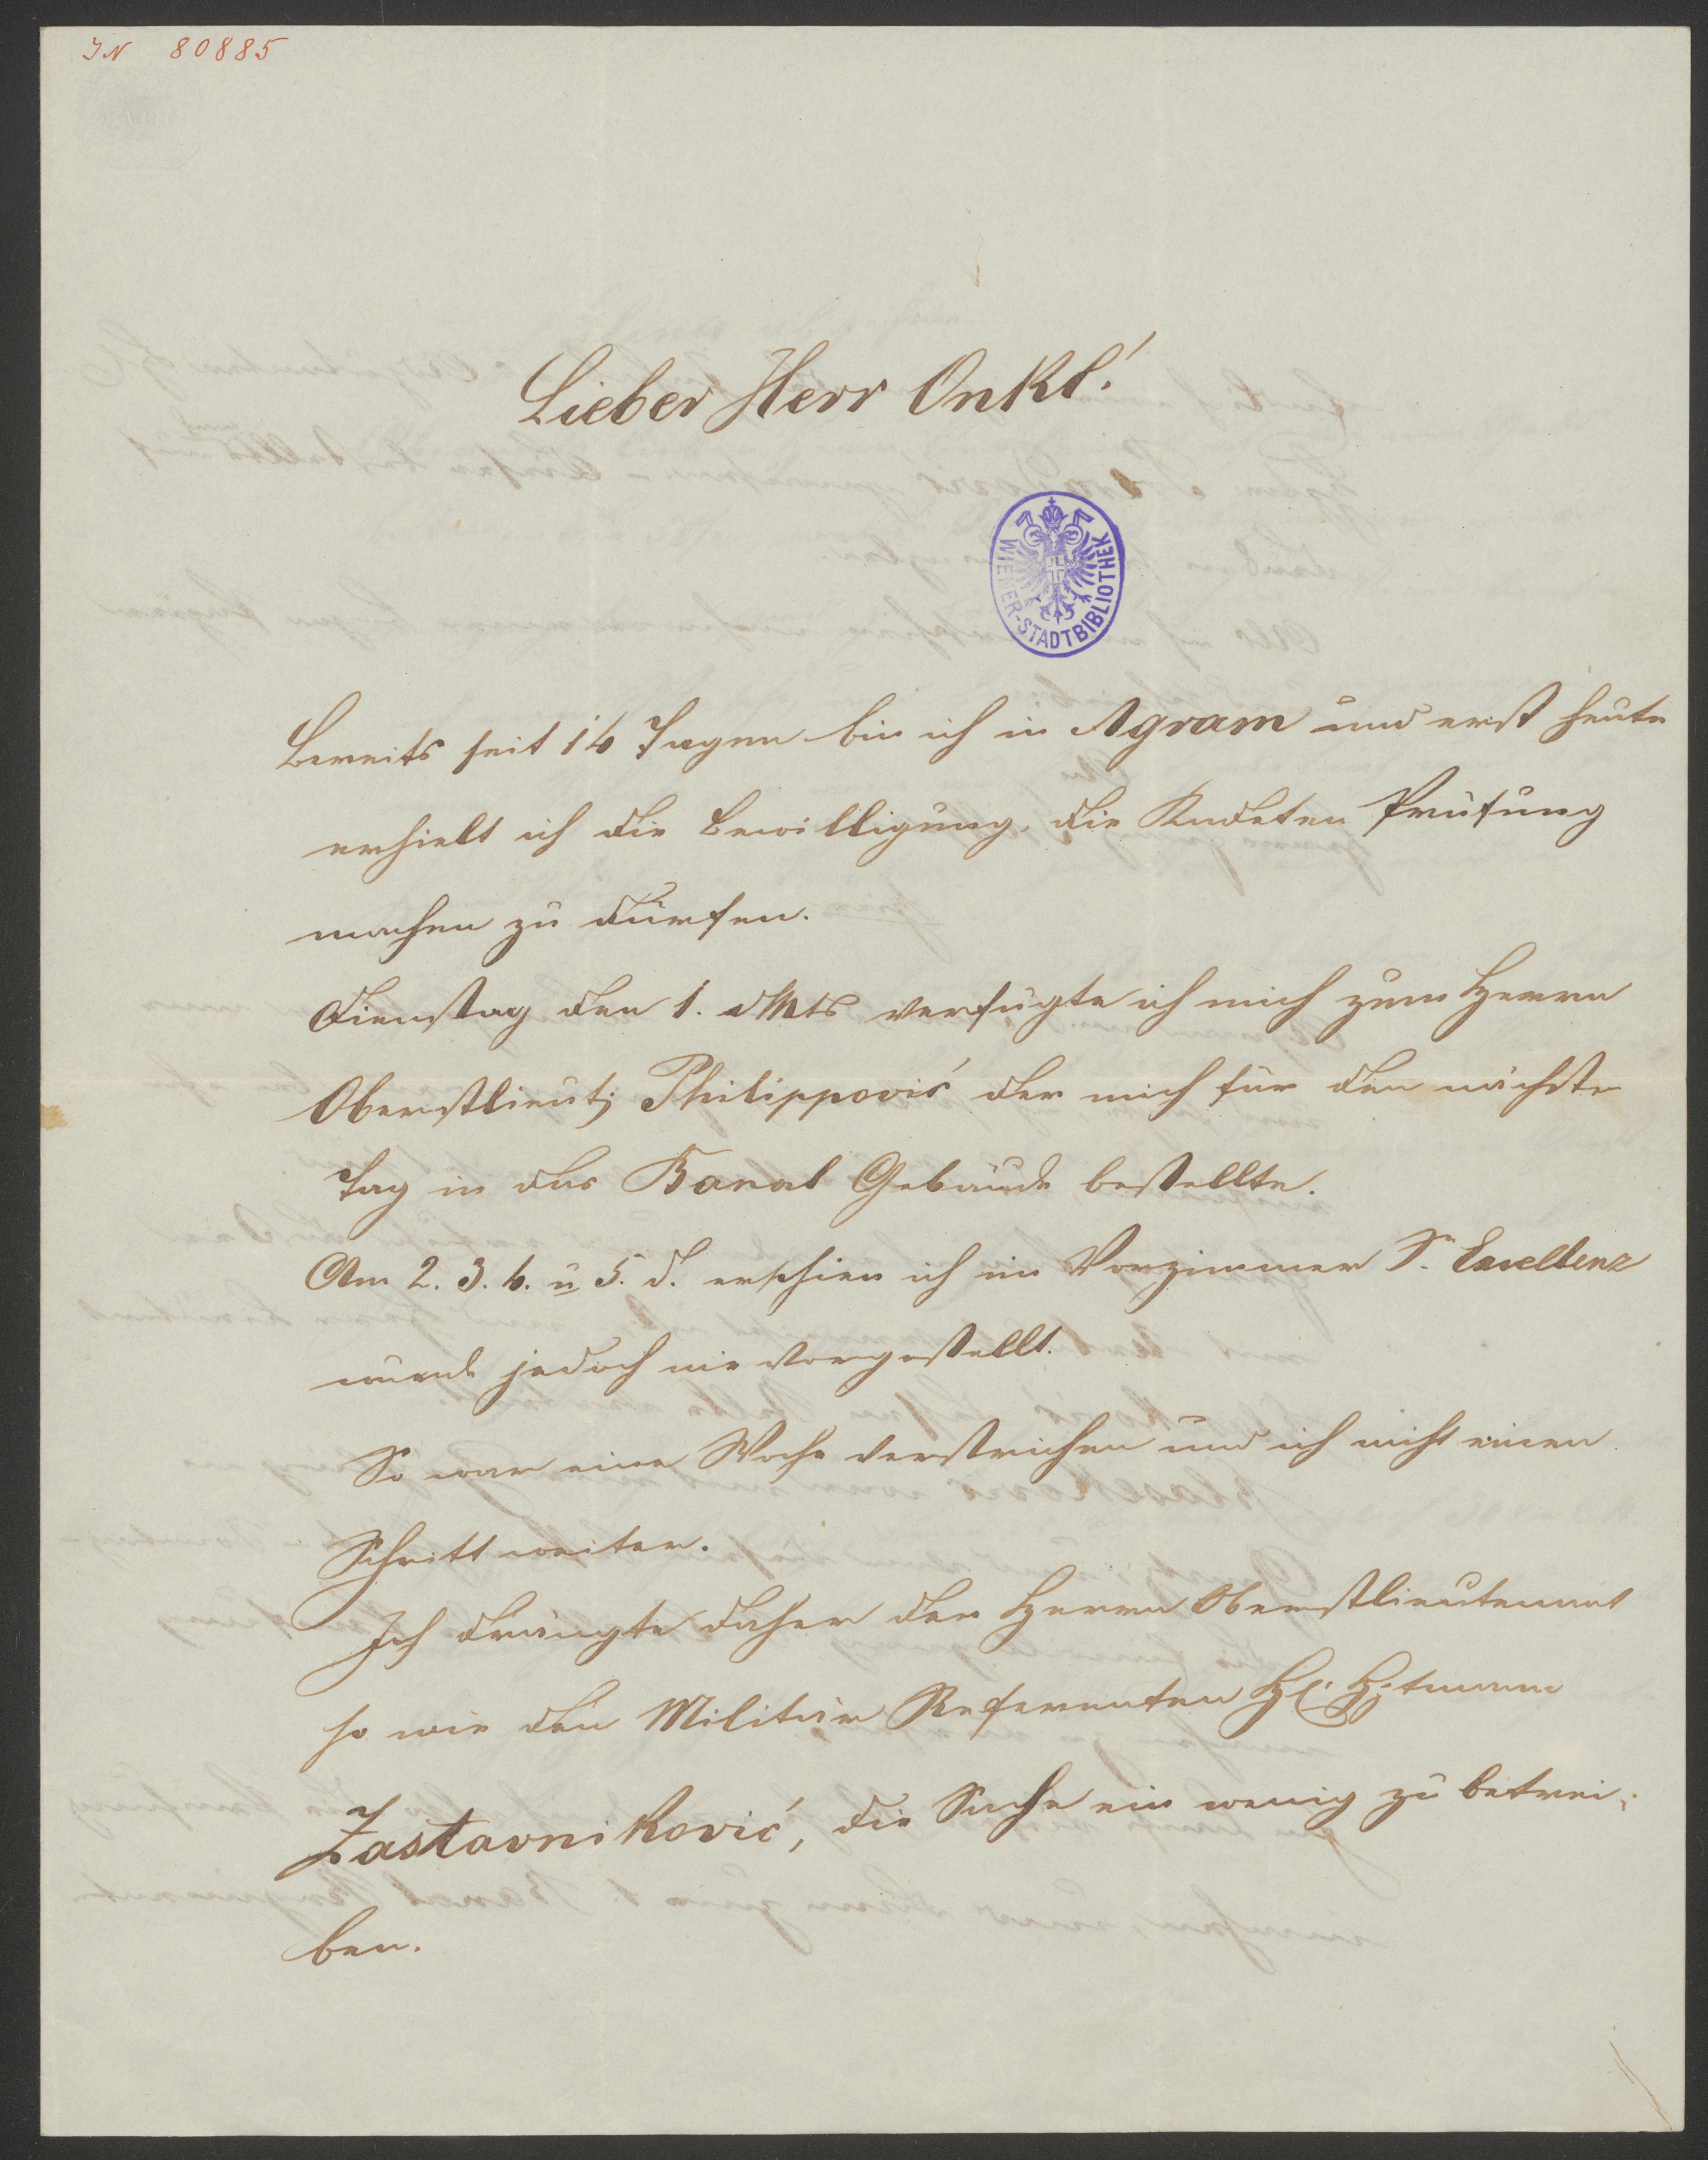 IN 80885
Lieber Herr Onkl!
WIENER-STADTBIBLIOTHEK
Bereits seit 14 Tagen bin ich in Agram und erst heute
erhielt ich die Bewilligung, die Kadeten Prüfung
machen zu dürfen.
Dienstag den 1. dMts verfügte ich mich zum Herrn
Oberstlieut; Philippović der mich für den nächsten
Tag in das Banal Gebäude bestellte.
Am 2. 3. 4. u 5. d. erschien ich im Vorzimmer Sr Excellenz
wurde jedoch nie vorgestellt.
So war eine Woche verstrichen und ich nicht einen
Schritt weiter.
Ich drängte daher den Herrn Oberstlieutenant
so wie den Militär Referenten H: Hptmann
Zastavniković, die Sache ein wenig zu betrei-
ben.